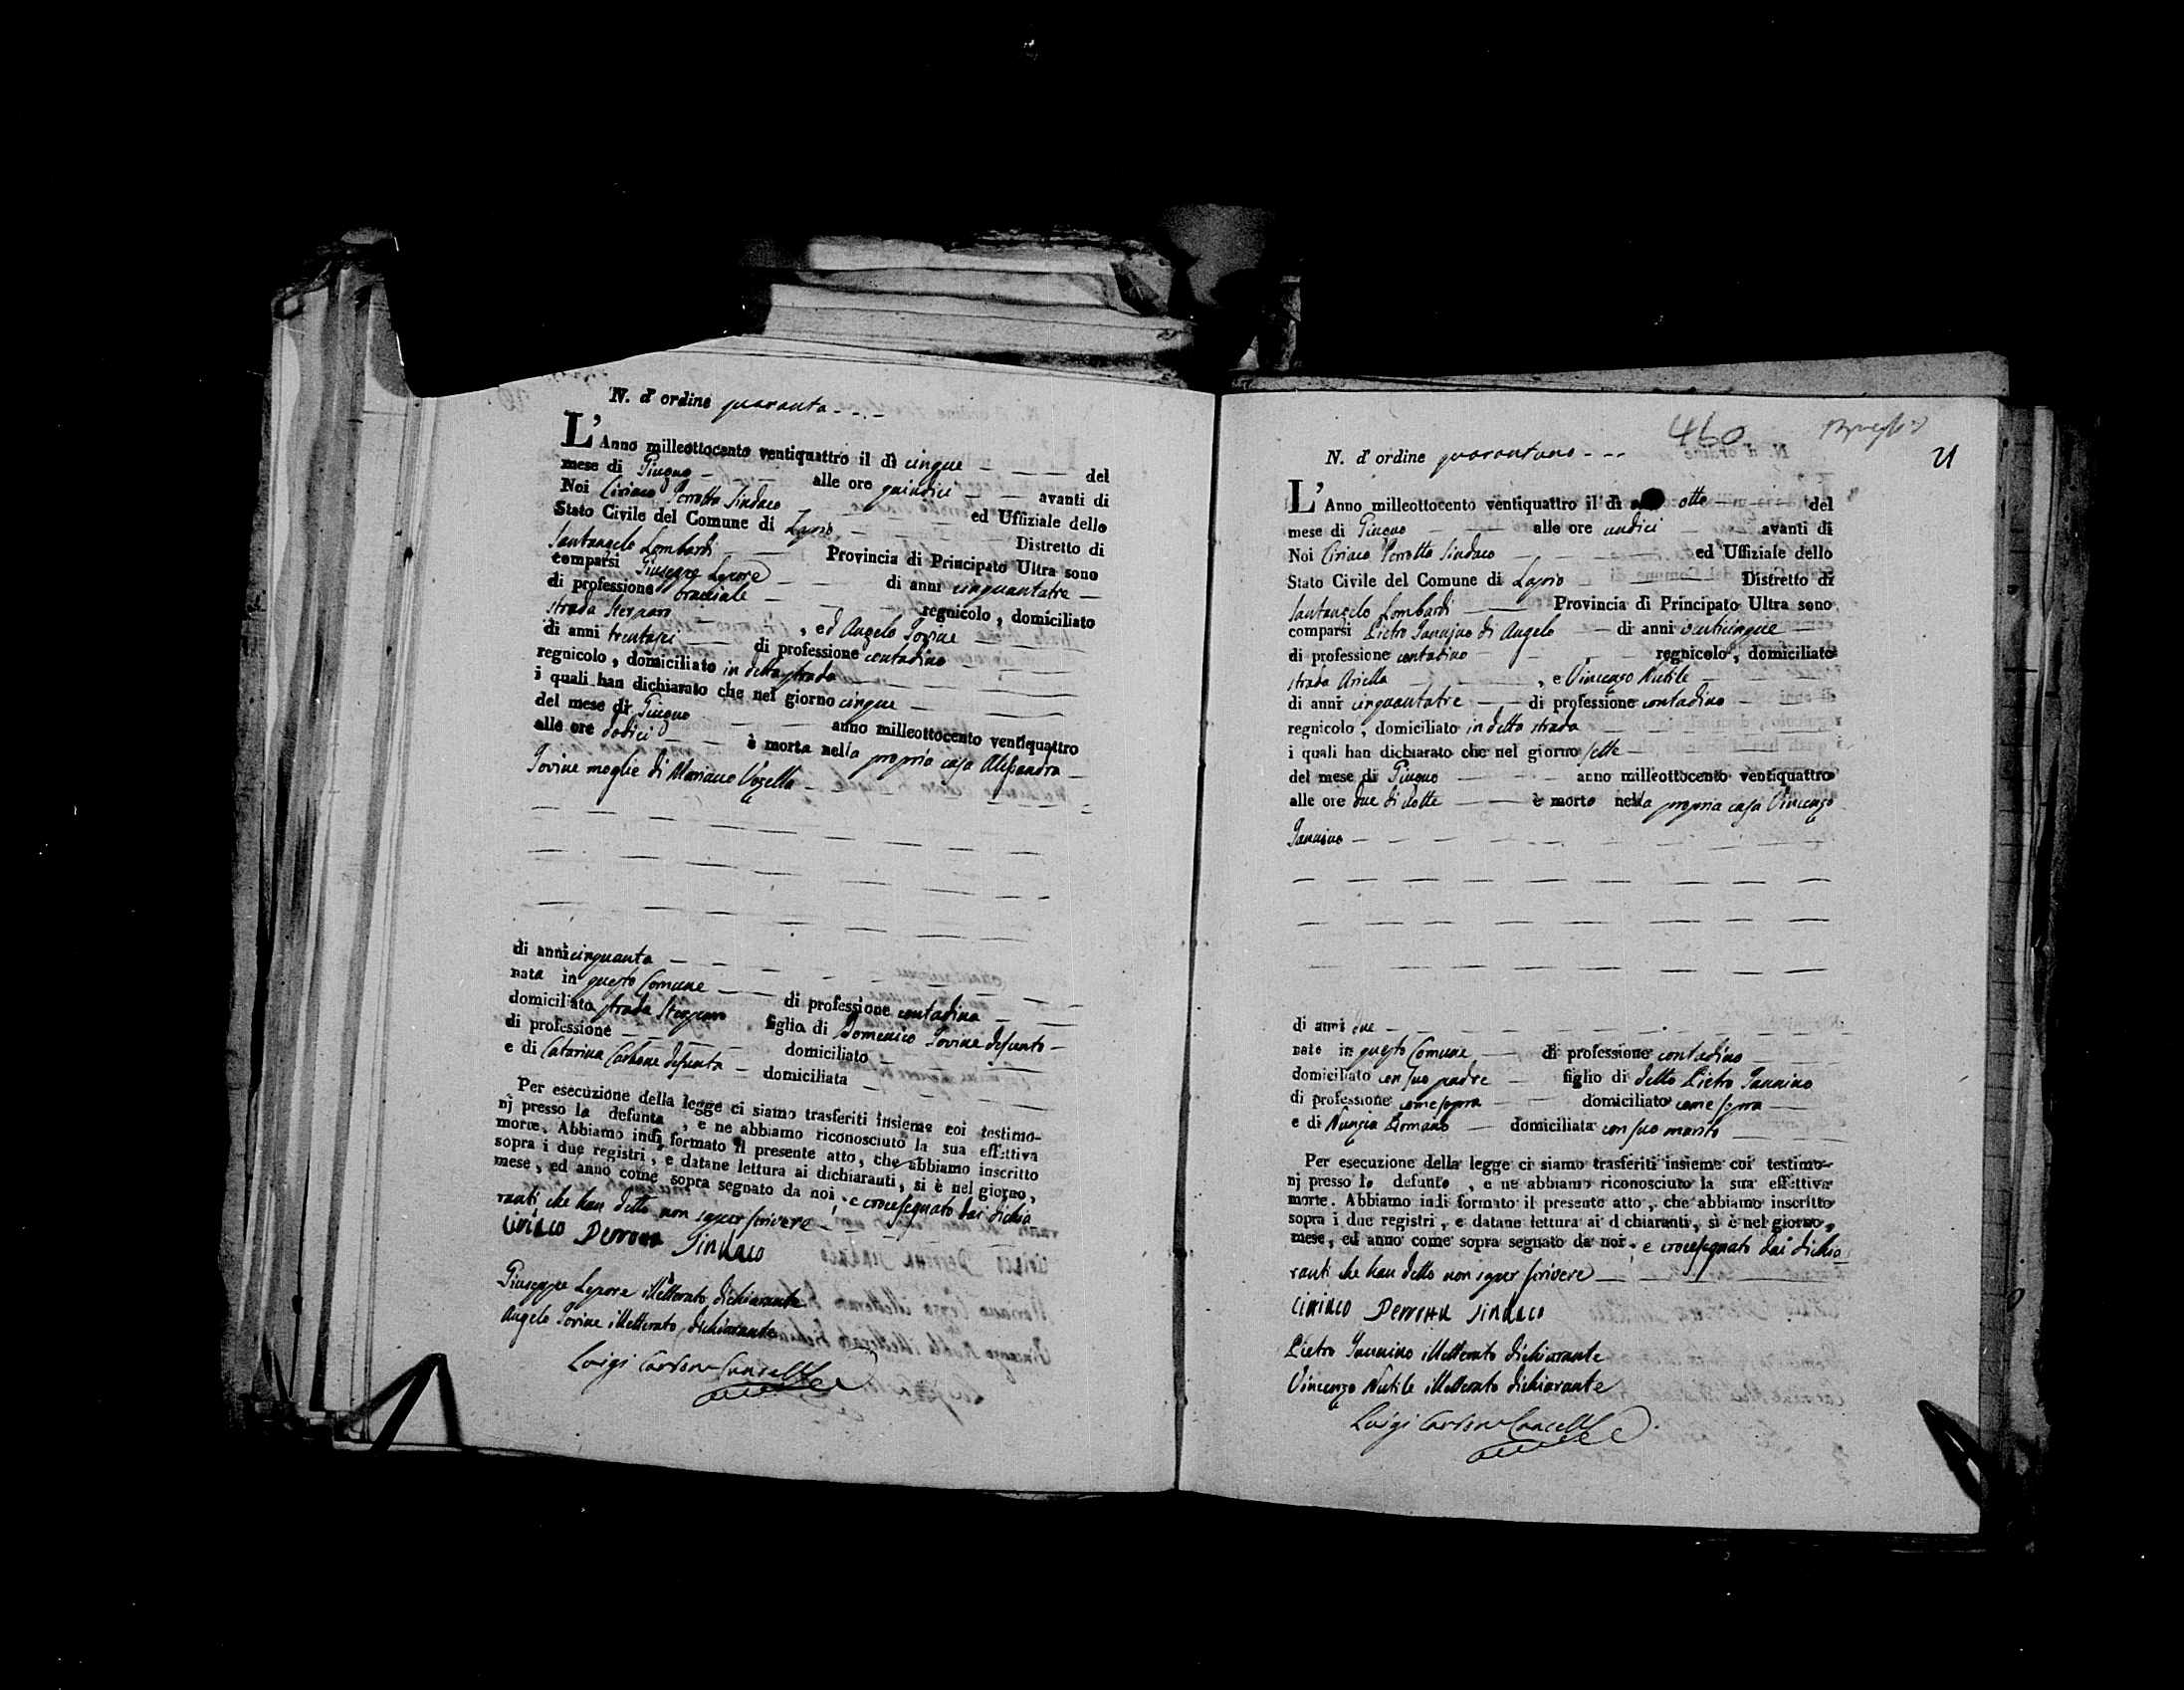 N. d' ordine quaranta
L' Anno milleottocento ventiquattro il dì cinque del
mese di Giugno alle ore quindici avanti di
Noi Ciriaco Perrotta Sindaco ed Uffiziale dello
Stato Civile del Comune di Lapio Distretto di
Santangelo Lombardi Provincia di Principato Ultra sono
comparsi Giuseppe Lepore di anni cinquantatre
di professione bracciale regnicolo, domiciliato
strada , ed Angelo Iovine
di anni trentasei di professione contadino
regnicolo, domiciliato in detta strada
i quali han dichiarato che nel giorno cinque
del mese di Giugno anno milleottocento ventiquattro
alle ore dodici è morta nella propria casa Alesandra
Iovine moglie di Mariano Vozella
di anni cinquanta
nata in questo Comune di professione contadina
domiciliato strada figlia di Domenico Iovine defunto
di professione domiciliato
e di Catarina Carbone defunta domiciliata
Per esecuzione della legge ci siamo trasferiti insieme coi testimo-
nj presso la defunta, e ne abbiamo riconosciuto la sua effettiva
morte. Abbiamo indi formato il presente atto, che abbiamo inscritto
sopra i due registri, e datane lettura ai dichiaranti, si è nel giorno,
mese, ed anno come sopra segnato da noi, e crocesegnato dai dichia
ranti che han detto non saper scrivere
Ciriaco Perrotta Sindaco
Giuseppe Lepore illetterato dichiarante
Angelo Iovine illetterato dichiarante
Luigi Carbone Cancelle
460
21
N. d' ordine quarantuno
L' Anno milleottocento ventiquattro il dì otto del
mese di Giugno alle ore undici avanti di
Noi Ciriaco Perrotta Sindaco ed Uffiziale dello
Stato Civile del Comune di Lapio Distretto di
Santangelo Lombardi Provincia di Principato Ultra sono
comparsi Pietro Iannino di Angelo di anni venticinque
di professione contadino regnicolo, domiciliato
strada Ariella , e Vincenzo Nutile
di anni cinquantatre di professione contadino
regnicolo, domiciliato in detta strada
i quali han dichiarato che nel giorno sette
del mese di Giugno anno milleottocento ventiquattro
alle ore due di notte è morto nella propria casa Vincenzo
Iannino
di anni due
nato in questo Comune di professione contadino
domiciliato con suo padre figlio di detto Pietro Iannino
di professione come sopra domiciliato come sopra
e di Nunzia Romano domiciliata con suo marito
Per esecuzione della legge ci siamo trasferiti insieme coi testimo-
nj presso lo defunto, e ne abbiamo riconosciuto la sua effettiva
morte. Abbiamo indi formato il presente atto, che abbiamo inscritto
sopra i due registri, e datane lettura ai d chiaranti, si è nel giorno,
mese, ed anno come sopra segnato da noi, e crocesegnato dai dichia
ranti che han detto non saper scrivere
Ciriaco Perrotta Sindaco
Pietro Iannino illetterato dichiarante
Vincenzo Nutile illetterato dichiarante
Luigi Carbone Cancelle